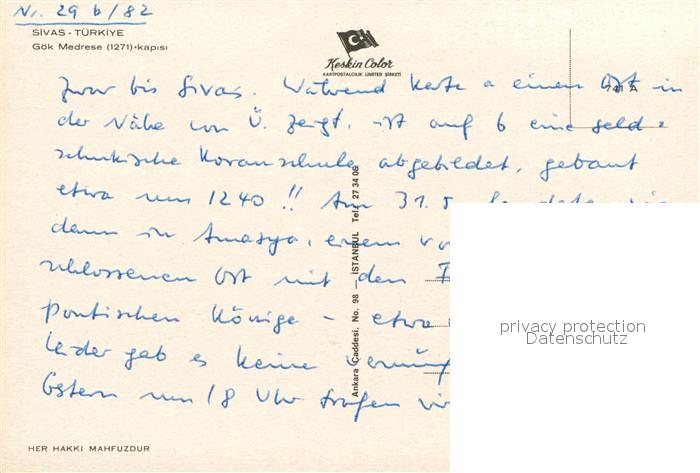 Nr. 29 b/82
SİVAS - TÜRKİYE
Gök Medrese (1271)•kapısı
Keskin Color
KARTPOSTALCILIK LIMITED ŞIRKETI
741 A
zwar bis Sivas. Während Karte a einen Ort in
der Nähe von Ü. zeigt, ist auf b eine seld=
schukische Koranschule abgebildet, gebaut
etwa um 1240!! Am 31.5.
dann in Amasya, einem
schlossenen Ort mit den
pontischen Könige - etwa
Leider gab es keine
Gstern um 18 Uhr trafen wir
Ankara Caddesi, No. 98 — İSTANBUL Tel. 27 34 06
privacy protection
Datenschutz
HER HAKKI MAHFUZDUR